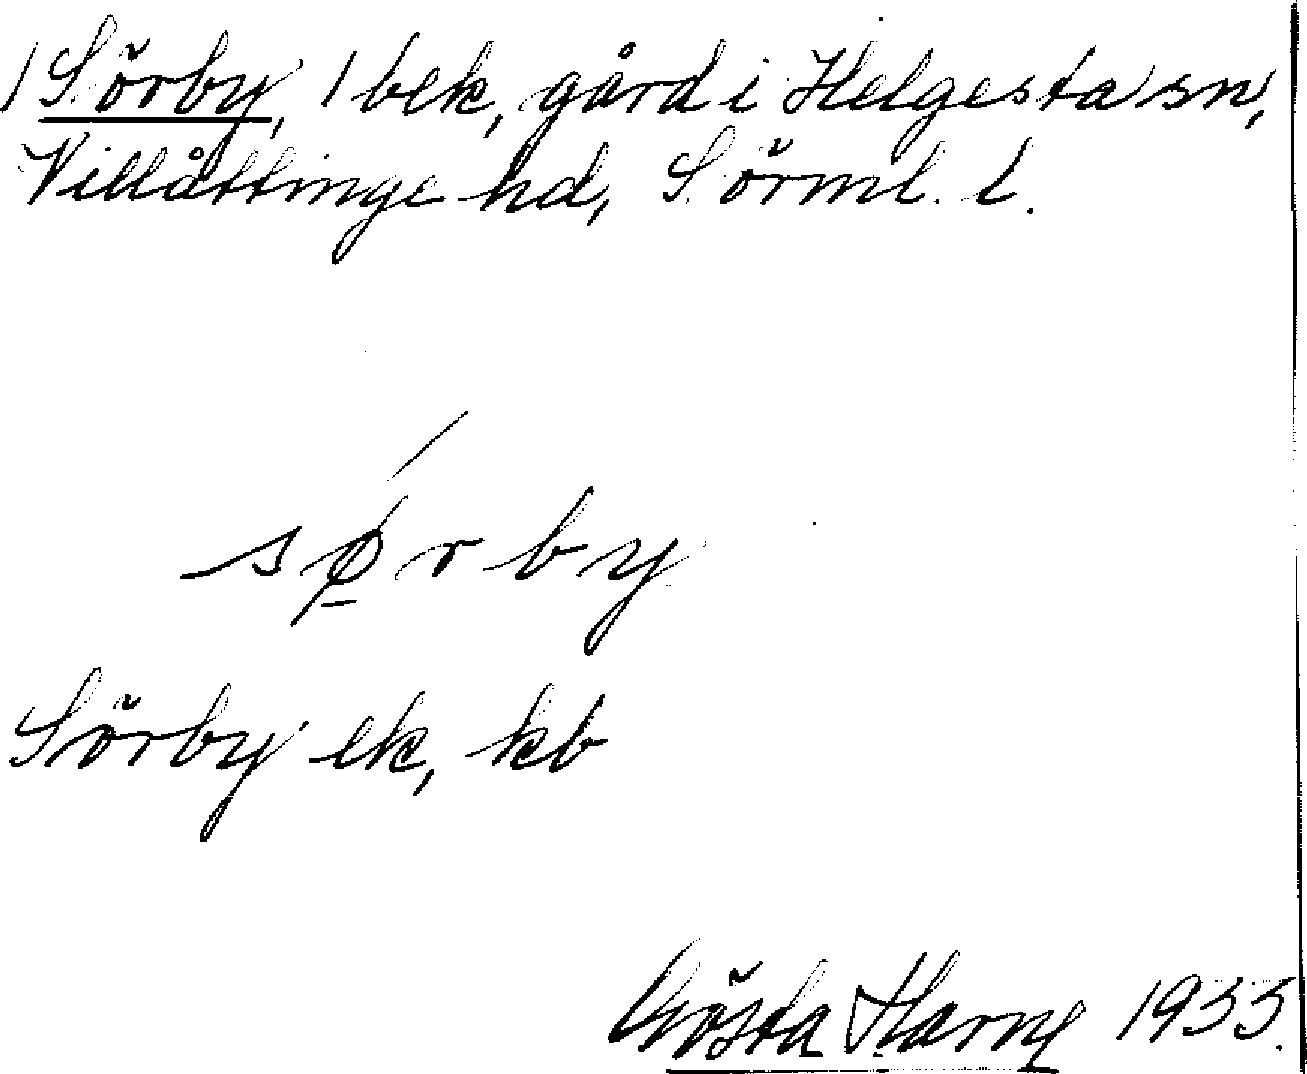 / Sörby, 1 bek, gård i Helgesta sn,
Villåttinge hd, Sörml. l.
sǿ̱rby
Sörby ek, kb
Gösta Harne 1933.